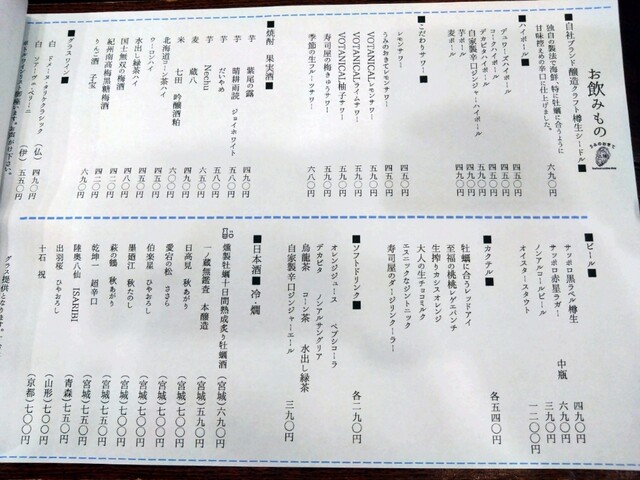 お飲みもの
■自社ブランド醸造クラフト樽生シードル■
独自の製法で海鮮、特に牡蠣に合うように
甘味控えめの辛口に仕上げました。
六九〇円
■ハイボール■
デュワーズハイボール 四五〇円
コークハイボール 四五〇円
デカビタハイボール 五九〇円
自家製辛口ジンジャーハイボール 五四〇円
芋ボール 四九〇円
麦ボール 四九〇円
■こだわりサワー■
レモンサワー 四五〇円
うみのおきてレモンサワー 五四〇円
VOTANICALレモンサワー
VOTANICALライムサワー
VOTANICAL柚子サワー
寿司屋の梅きゅうサワー
季節の生フルーツサワー 六八〇円
■焼酎 果実酒■
芋 紫尾の露 四九〇円
芋 晴耕雨読 ジョイホワイト 五八〇円
芋 だいやめ 五八〇円
芋 Nechu 六五〇円
麦 蔵八 四九〇円
米 七田 吟醸酒粕 六〇〇円
北海道コーン茶ハイ
ウーロンハイ
水出し緑茶ハイ
国士無双の梅酒
紀州南高梅黒糖梅酒
りんご酒 子宝 六九〇円
■グラスワイン■
白 ドメーヌ・タケダクラシック (仏) 四九〇円
白 ソアーヴェ・ベターニ (伊) 五五〇円
■ビール■
サッポロ黒ラベル樽生 四九〇円
サッポロ赤星ラガー 中瓶 六九〇円
ノンアルコールビール 三九〇円
オイスタースタウト 一二〇〇円
■カクテル■
牡蠣に合うレッドアイ
至福の桃桃レゲエパンチ
生搾りカシスオレンジ
大人の生チョコミルク
エスニックなジントニック
寿司屋のダージリンクーラー
各五四〇円
■ソフトドリンク■
オレンジジュース ペプシコーラ
デカビタ ノンアルサングリア
烏龍茶 コーン茶 水出し緑茶
各二九〇円
自家製辛口ジンジャーエール 三九〇円
■日本酒■冷・燗
燻製牡蠣十日間熟成炙り牡蠣酒 (宮城) 六九〇円
一ノ蔵無鑑査 本醸造 (宮城) 五九〇円
日高見 秋あがり (宮城) 七〇〇円
愛宕の松 ささら (宮城) 七〇〇円
伯楽星 ひやおろし (宮城) 七〇〇円
墨廼江 秋とのし (宮城) 七〇〇円
萩の鶴 秋あがり (宮城) 七〇〇円
乾坤一 超辛口 (宮城) 七五〇円
陸奥八仙 ISARIBI (青森) 七五〇円
出羽桜 ひやおろし (山形) 七〇〇円
十石 祝 (京都) 七〇〇円